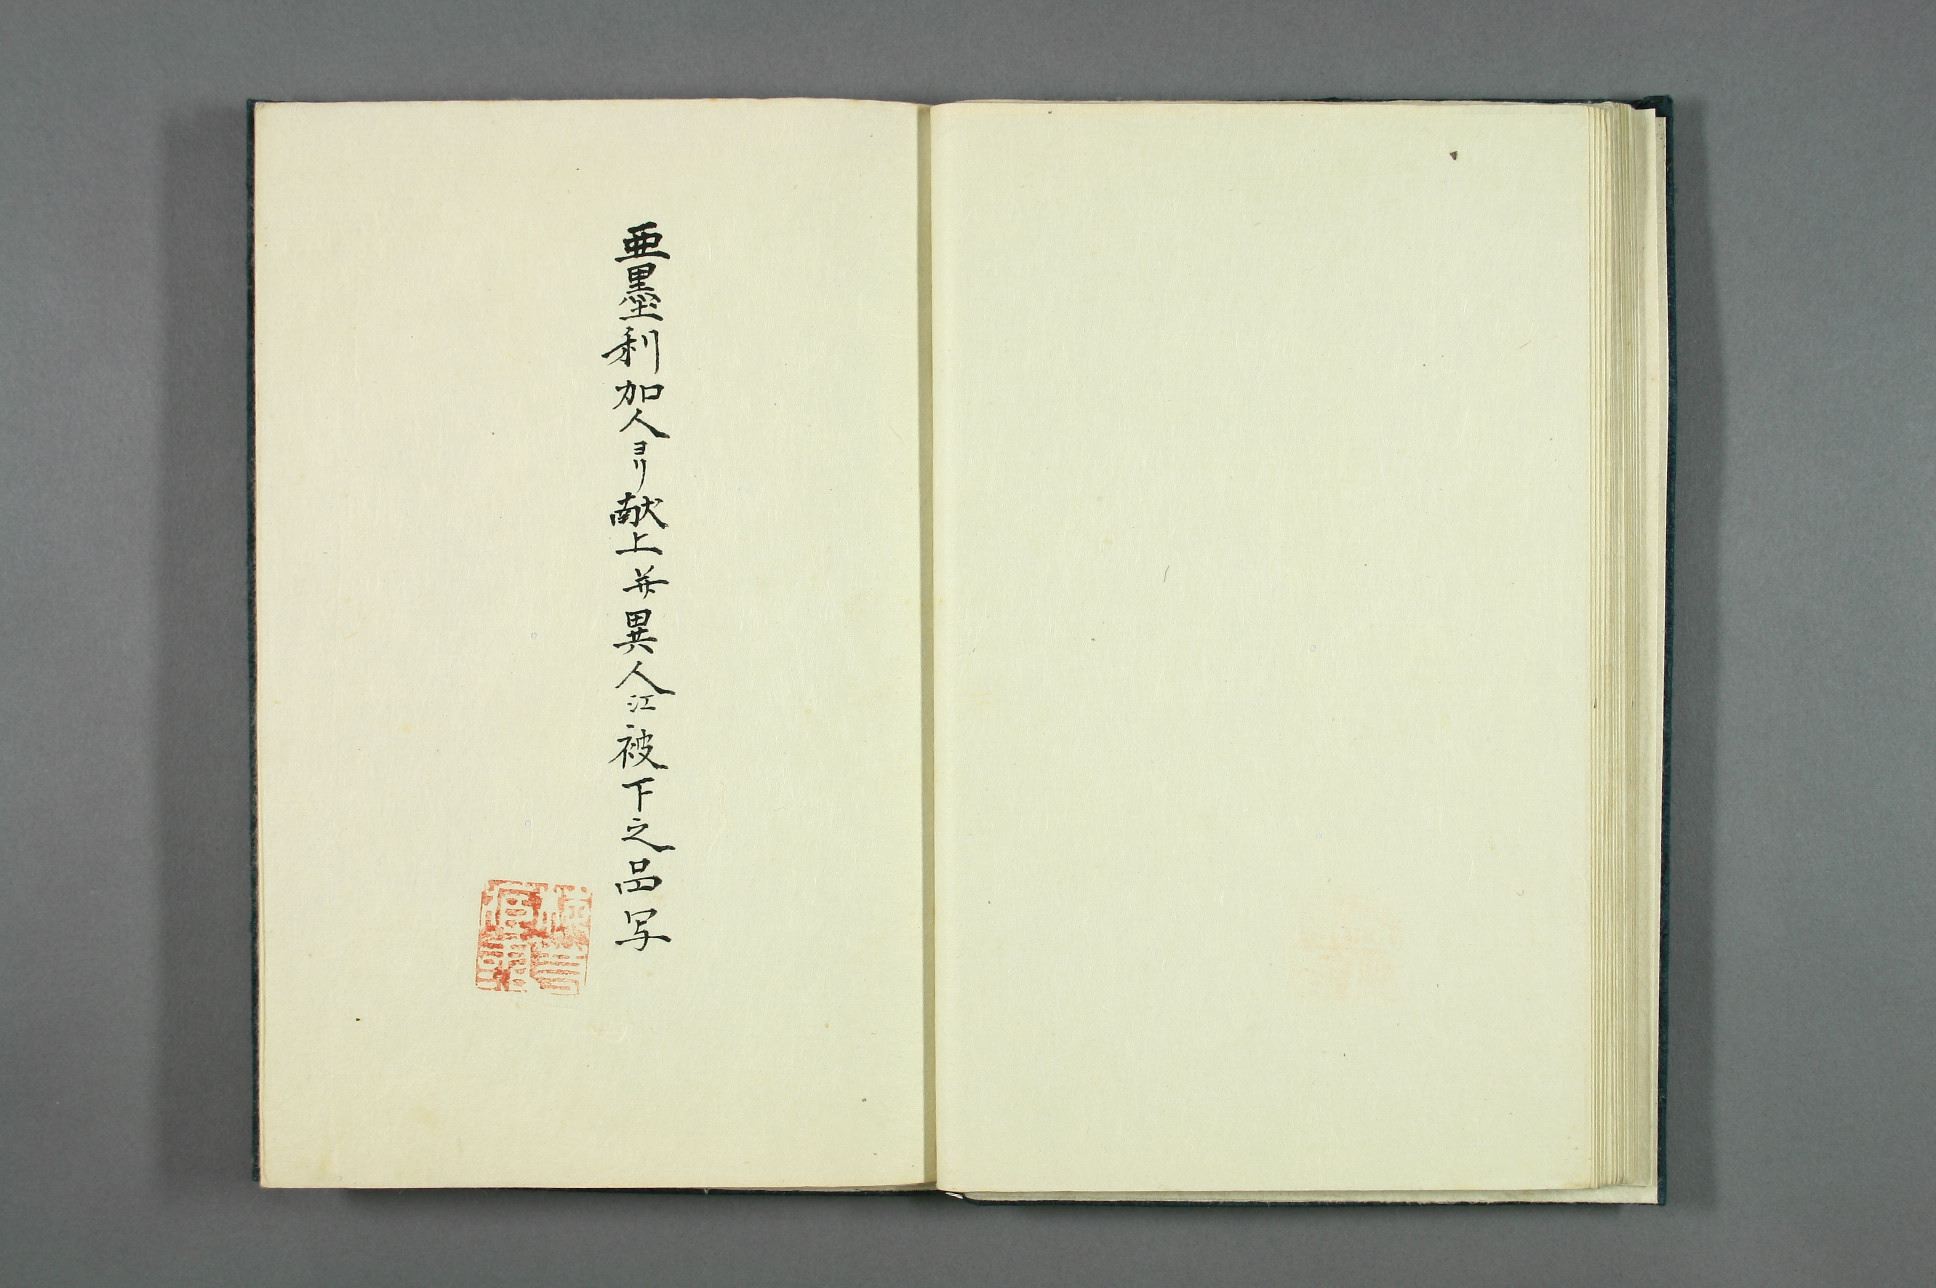 亜墨利加人ヨリ献上并異人江被下之品写